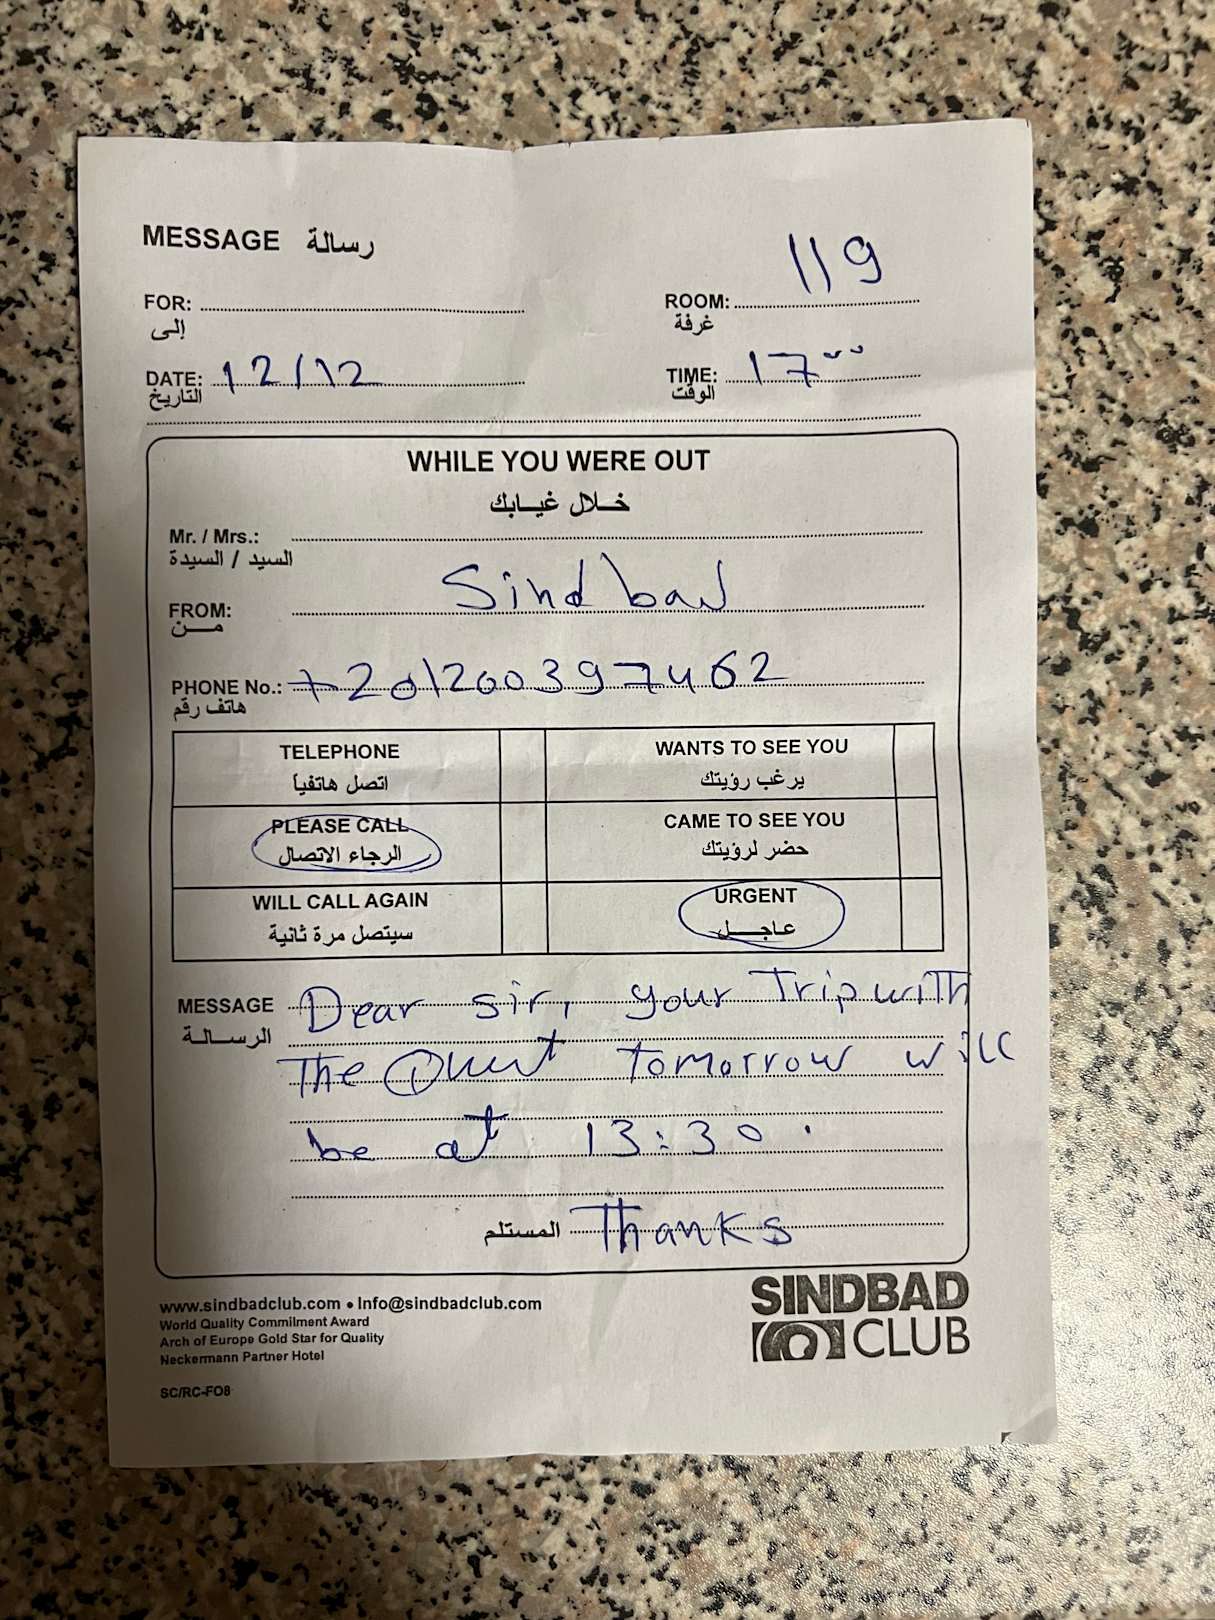 MESSAGE رسالة
FOR: ROOM: 119
إلى غرفة
DATE: 12/12 TIME: 17⁰⁰
التاريخ الوقت
WHILE YOU WERE OUT
خلال غيابك
Mr. / Mrs.:
السيد / السيدة
FROM: Sindbad
من
PHONE No.: +201200397462
هاتف رقم
TELEPHONE WANTS TO SEE YOU
اتصل هاتفياً يرغب رؤيتك
PLEASE CALL CAME TO SEE YOU
الرجاء الاتصال حضر لرؤيتك
WILL CALL AGAIN URGENT
سيتصل مرة ثانية عاجل
MESSAGE Dear sir, your Trip with
الرسالة
The tomorrow will
be at 13:30.
المستلم Thanks
www.sindbadclub.com • Info@sindbadclub.com
World Quality Commilment Award
Arch of Europe Gold Star for Quality
Neckermann Partner Hotel
SC/RC-FO8
SINDBAD
CLUB